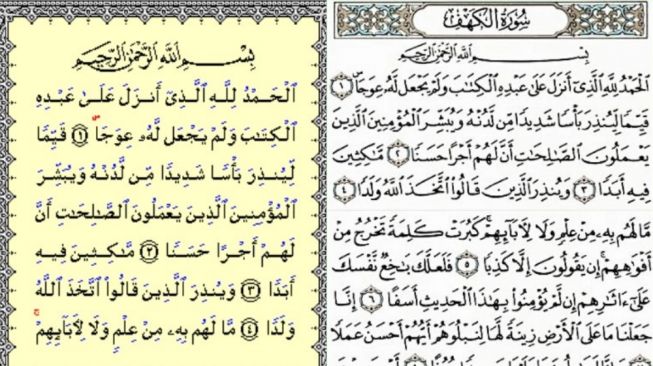 بِسْمِ ٱللَّهِ ٱلرَّحْمَٰنِ ٱلرَّحِيمِ
ٱلْحَمْدُ لِلَّهِ ٱلَّذِىٓ أَنزَلَ عَلَىٰ عَبْدِهِ
ٱلْكِتَٰبَ وَلَمْ يَجْعَل لَّهُۥ عِوَجَاۜ ١ قَيِّمًا
لِّيُنذِرَ بَأْسًا شَدِيدًا مِّن لَّدُنْهُ وَيُبَشِّرَ
ٱلْمُؤْمِنِينَ ٱلَّذِينَ يَعْمَلُونَ ٱلصَّٰلِحَٰتِ أَنَّ
لَهُمْ أَجْرًا حَسَنًا ٢ مَّٰكِثِينَ فِيهِ
أَبَدًا ٣ وَيُنذِرَ ٱلَّذِينَ قَالُوا۟ ٱتَّخَذَ ٱللَّهُ
وَلَدًا ٤ مَّا لَهُم بِهِۦ مِنْ عِلْمٍ وَلَا لِءَابَآئِهِمْ ۚ
سُورَةُ الكَهْفِ
بِسْمِ ٱللَّهِ ٱلرَّحْمَٰنِ ٱلرَّحِيمِ
ٱلْحَمْدُ لِلَّهِ ٱلَّذِىٓ أَنزَلَ عَلَىٰ عَبْدِهِ ٱلْكِتَٰبَ وَلَمْ يَجْعَل لَّهُۥ عِوَجَاۜ ١
قَيِّمًا لِّيُنذِرَ بَأْسًا شَدِيدًا مِّن لَّدُنْهُ وَيُبَشِّرَ ٱلْمُؤْمِنِينَ ٱلَّذِينَ
يَعْمَلُونَ ٱلصَّٰلِحَٰتِ أَنَّ لَهُمْ أَجْرًا حَسَنًا ٢ مَّٰكِثِينَ
فِيهِ أَبَدًا ٣ وَيُنذِرَ ٱلَّذِينَ قَالُوا۟ ٱتَّخَذَ ٱللَّهُ وَلَدًا ٤
مَّا لَهُم بِهِۦ مِنْ عِلْمٍ وَلَا لِءَابَآئِهِمْ ۚ كَبُرَتْ كَلِمَةً تَخْرُجُ مِنْ
أَفْوَٰهِهِمْ ۚ إِن يَقُولُونَ إِلَّا كَذِبًا ٥ فَلَعَلَّكَ بَٰخِعٌ نَّفْسَكَ
عَلَىٰٓ ءَاثَٰرِهِمْ إِن لَّمْ يُؤْمِنُوا۟ بِهَٰذَا ٱلْحَدِيثِ أَسَفًا ٦ إِنَّا
جَعَلْنَا مَا عَلَى ٱلْأَرْضِ زِينَةً لَّهَا لِنَبْلُوَهُمْ أَيُّهُمْ أَحْسَنُ عَمَلًا